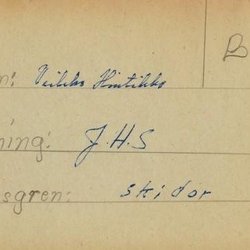 B
n: Veikko Hintikka
ning: J.H.S
sgren: skidor